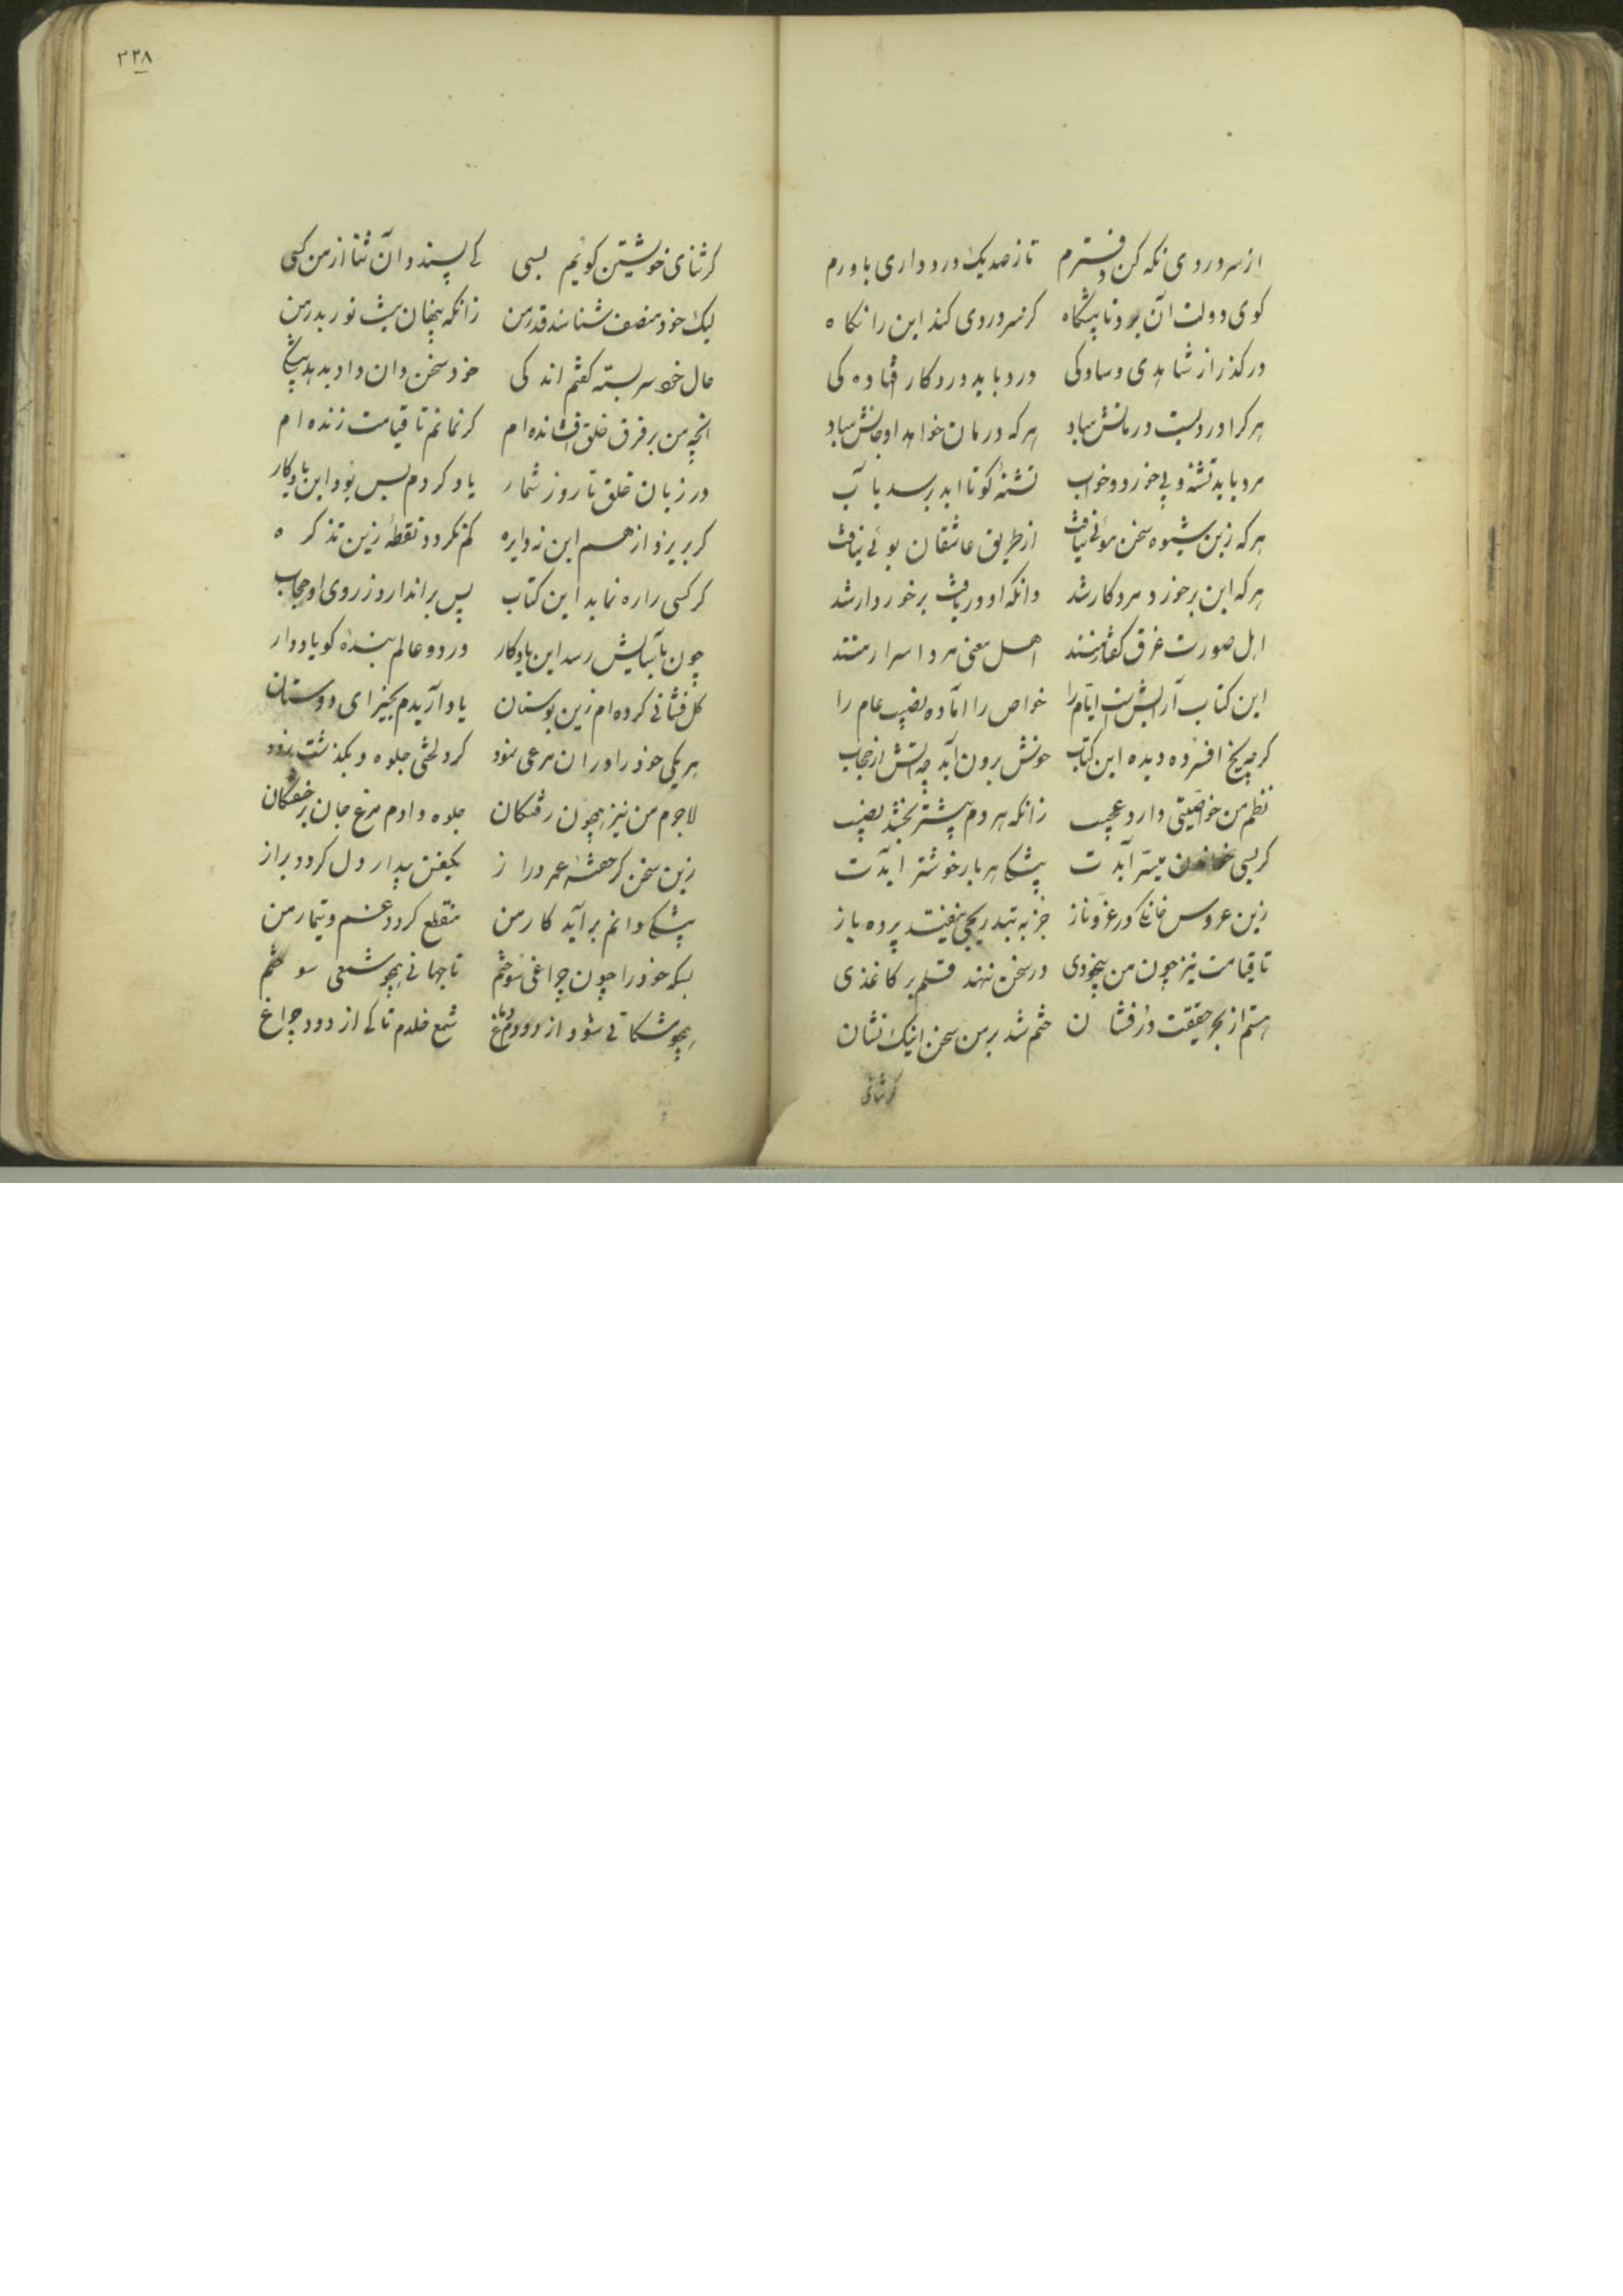 از سر دردی نکه کن دفترم تا ز صد یک درد داری باورم
کوی دولت آن برد تا پیشگاه کز سر دردی کند این را نکاه
درکذر از زاهدی و سادکی درد باید درد کار افتادکی
هر کرا دردیست درمانش مباد هر که درمان خواهد او جانش مباد
مرد باید تشنه و بی خورد و خواب تشنهٔ کو تا ابد نرسد بآب
هر که زین شیوه سخن موئی نیافت از طریق عاشقان بوئی نیافت
هر که این برخورد مرد کار شد وانکه او دریافت برخوردار شد
اهل صورت غرق کفتار منند اهل معنی مرد اسرار منند
این کتاب آرایش است ایام را خواص را آماده نصیب عام را
کر چو یخ افسرده دیده این کتاب خونش برون آید چو آتش از حجاب
نظم من خاصیتی دارد عجیب زانکه هر دم بیشتر بخشد نصیب
کر بسی خواندن میسر آیدت بیشکی هر بار خوشتر آیدت
زین عروس خانکی در عز و ناز جز بتدریجی نیفتد پرده باز
تا قیامت نیز چون من بیخودی در سخن ننهد قلم بر کاغذی
هستم از بحر حقیقت درفشان ختم شد بر من سخن اینک نشان
کر ثنای
۲۲۸
کر ثنای خویشتن کویم بسی کی پسندد آن ثنا از من کسی
لیک خود منصف شناسد قدر من زانکه پنهان نیست نور بدر من
حال خود سر بسته کفتم اندکی خود سخن دان داد بدهد بیشکی
انچه من بر فرق خلق افشانده ام کر نمانم تا قیامت زنده ام
در زبان خلق تا روز شمار یاد کردم بس بود این یادکار
کر بریزد از هم این نه دایره کم نکردد نقطهٔ زین تذکره
کر کسی را ره نماید این کتاب پس براندازد ز روی او حجاب
چون بآسایش رسد این یادکار در دو عالم بنده کو یاد دار
کل فشانی کرده ام زین بوستان یاد آریدم بخیر ای دوستان
هر یکی خود را در آن نوعی نمود کرد لختی جلوه و بکذشت زود
لاجرم من نیز همچون رفتکان جلوه دادم مرغ جان بر خفتکان
زین سخن کر خفتهٔ عمر دراز یکنفس بیدار دل کردد براز
بیشکی دانم برآید کار من منقطع کردد غم و تیمار من
بسکه خود را چون چراغی سوختم تا جهانی همچو شمعی سوختم
همچو مشکاتی شود از دود دماغ شمع خلدم تا کی از دود چراغ